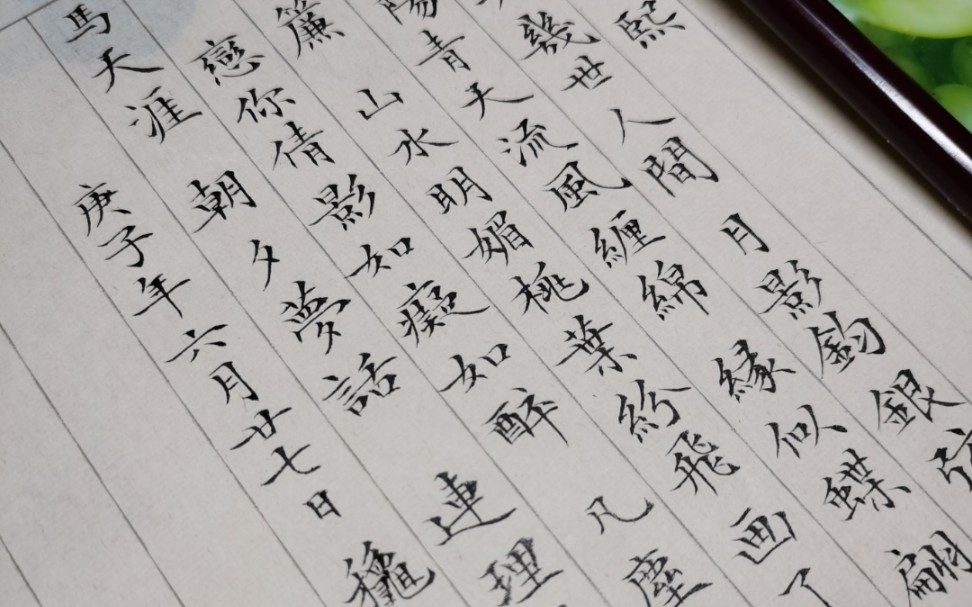 熙
幾世人間 月影鈎銀
陽青天流風纏綿 緣似蝶翩
簾 山水明媚桃葉紛飛 画了
戀你倩影如癡如醉 凡塵
馬天涯 朝夕夢話 連理
庚子年六月廿七日 穐